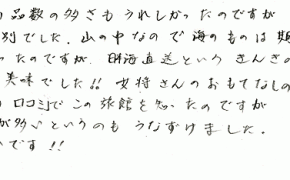 品数の多さもうれしかったのですが
別でした。山の中なので海のものは期
ったのですが、日本海直送という きんきの
美味でした!! 女将さんのおもてなしの
口コミでこの旅館を知ったのですが
が多いというのも うなずけました。
です!!